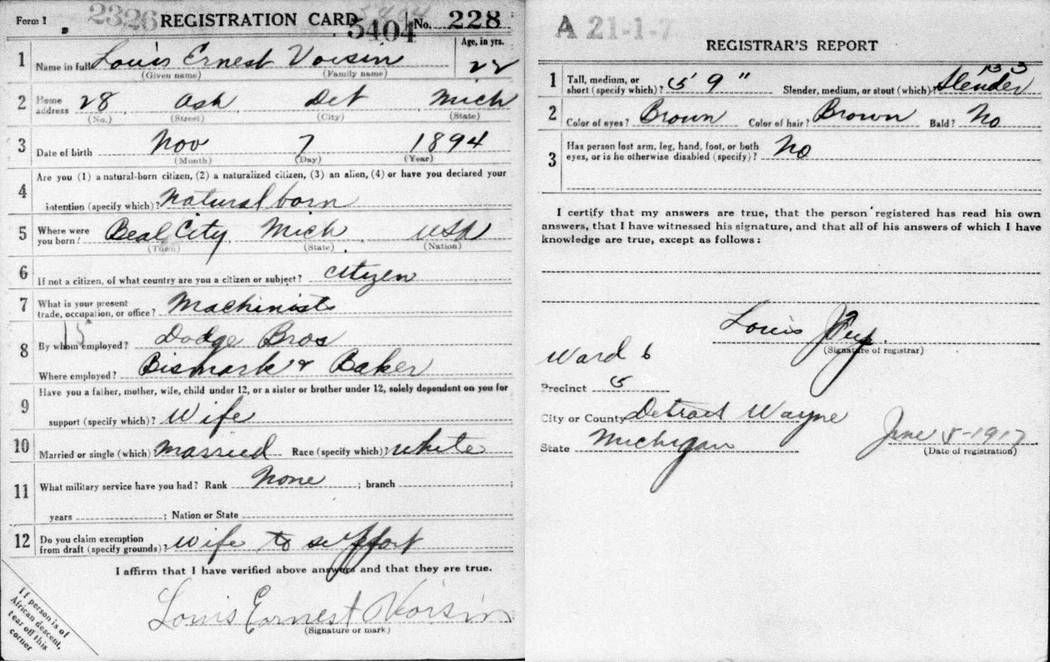 Form 1 2326 REGISTRATION CARD 5404 No. 228
1 Name in full Louis Ernest Voisin Age, in yrs. 22
(Given name) (Family name)
2 Home address 28 Ash Det Mich
(No.) (Street) (City) (State)
3 Date of birth Nov 7 1894
(Month) (Day) (Year)
4 Are you (1) a natural-born citizen, (2) a naturalized citizen, (3) an alien, (4) or have you declared your
intention (specify which)? Natural born
5 Where were you born? Beal City Mich USA
(Town) (State) (Nation)
6 If not a citizen, of what country are you a citizen or subject? Citizen
7 What is your present trade, occupation, or office? Machinist
15
8 By whom employed? Dodge Bros
Where employed? Bismark & Baker
9 Have you a father, mother, wife, child under 12, or a sister or brother under 12, solely dependent on you for
support (specify which)? Wife
10 Married or single (which) married Race (specify which)? white
11 What military service have you had? Rank None ; branch
years ; Nation or State
12 Do you claim exemption from draft (specify grounds)? Wife to support
I affirm that I have verified above answers and that they are true.
Louis Ernest Voisin
(Signature or mark)
If person is of
African descent,
tear off this
corner
A 21-1-7
REGISTRAR'S REPORT
1 Tall, medium, or short (specify which)? 5 9" Slender, medium, or stout (which)? Slender
2 Color of eyes? Brown Color of hair? Brown Bald? No
3 Has person lost arm, leg, hand, foot, or both
eyes, or is he otherwise disabled (specify)? No
I certify that my answers are true, that the person registered has read his own
answers, that I have witnessed his signature, and that all of his answers of which I have
knowledge are true, except as follows:
Louis
(Signature of registrar)
Ward 6
Precinct 5
City or County Detroit Wayne
State Michigan June 5-1917
(Date of registration)